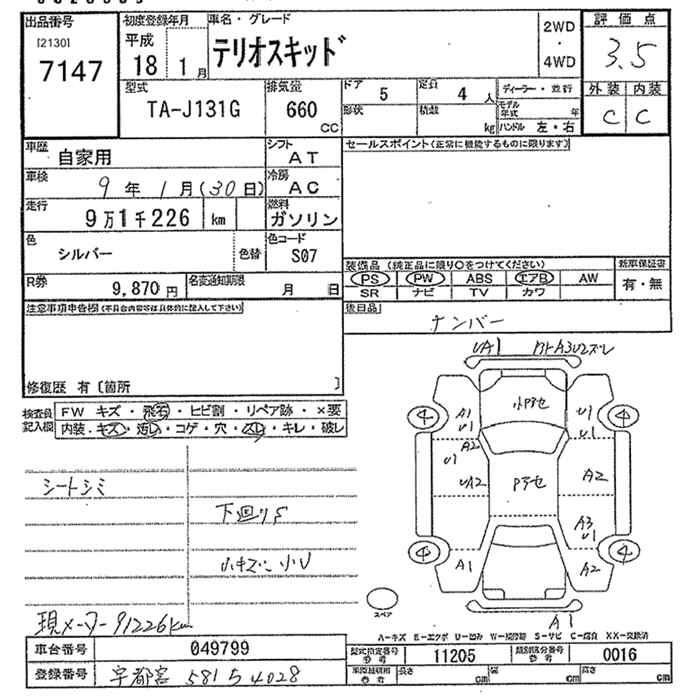 出品番号 初度登録年月 車名・グレード 2WD ・ 4WD 評価点
[2130] 7147 平成 18 1月 テリオスキッド 3.5
型式 TA-J131G 排気量 660 CC ドア 5 定員 4人 ディーラー・並行 外装 内装
形状 積載 kg モデル年式 年 ハンドル 左・右 C C
車歴 自家用 シフト AT セールスポイント(正常に機能するものに限ります)
車検 9年1月(30日) 冷房 AC
走行 9万1千226 km 燃料 ガソリン
色 シルバー 色替 色コード S07
装備品 (純正品に限り○をつけてください) 新車保証書
PS PW ABS エアB AW 有・無
SR ナビ TV カワ
R券 9,870円 名変通知期限 月 日
後日品 ナンバー
注意事項申告欄(不具合内容等は具体的に記入して下さい)
修復歴 有〔箇所 〕
検査員記入欄 FW キズ・飛石・ヒビ割・リペア跡・×要
内装・キズ・汚レ・コゲ・穴・スレ・キレ・破レ
UA1
A1 U1 小アセ U1 U1
A2 U1
UA2 Pアセ A2
A3 U1
A1 A2
A1
4 4 4 4
シートシミ
下廻りS
小キズ、小U
スペア
現メーター91226km
A-キズ E-エクボ U-凹み W-補修跡 S-サビ C-腐食 XX-交換済
車台番号 049799 型式指定番号 参考 11205 類別区分番号 参考 0016
登録番号 宇都宮 581 ち 4028 車両組機用 参考 長さ cm 幅 cm 高さ cm